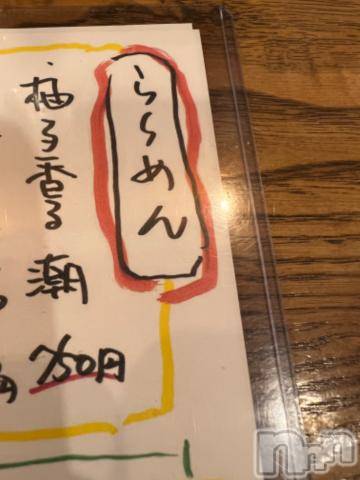 らぁめん
柚子香る
潮
750円
円